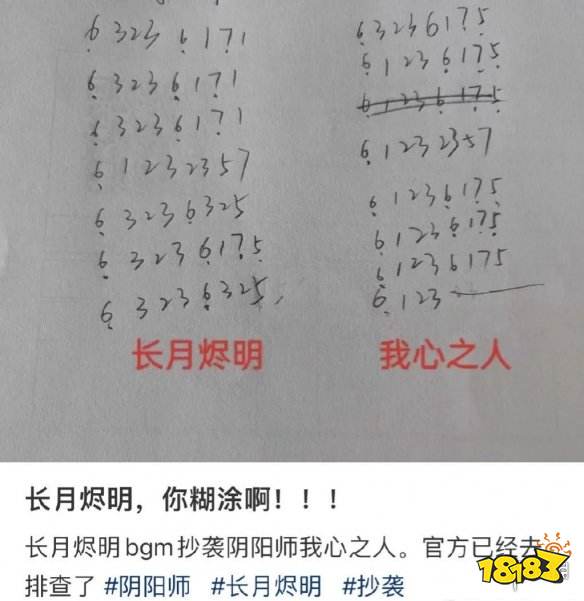 63236171
63236171
63236171
61232357
63236325
63236175
63236325
长月烬明
63236175
61236175
61236175
61232357
61236175
61236175
61236175
6123
我心之人
长月烬明，你糊涂啊！！！
长月烬明bgm抄袭阴阳师我心之人。官方已经去
排查了 #阴阳师 #长月烬明 #抄袭
18183